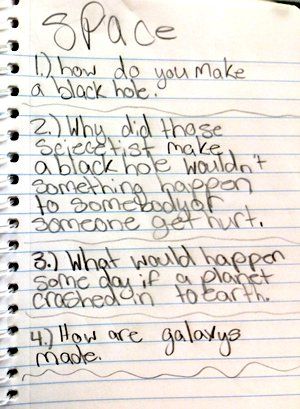 SPace
1.) how do you make
a black hole.
2.) Why did those
sciecetist make
a black hole wouldn't
something happen
to somebody or
someone get hurt.
3.) What would happen
some day if a planet
crashed in to earth.
4.) How are galaxys
made.